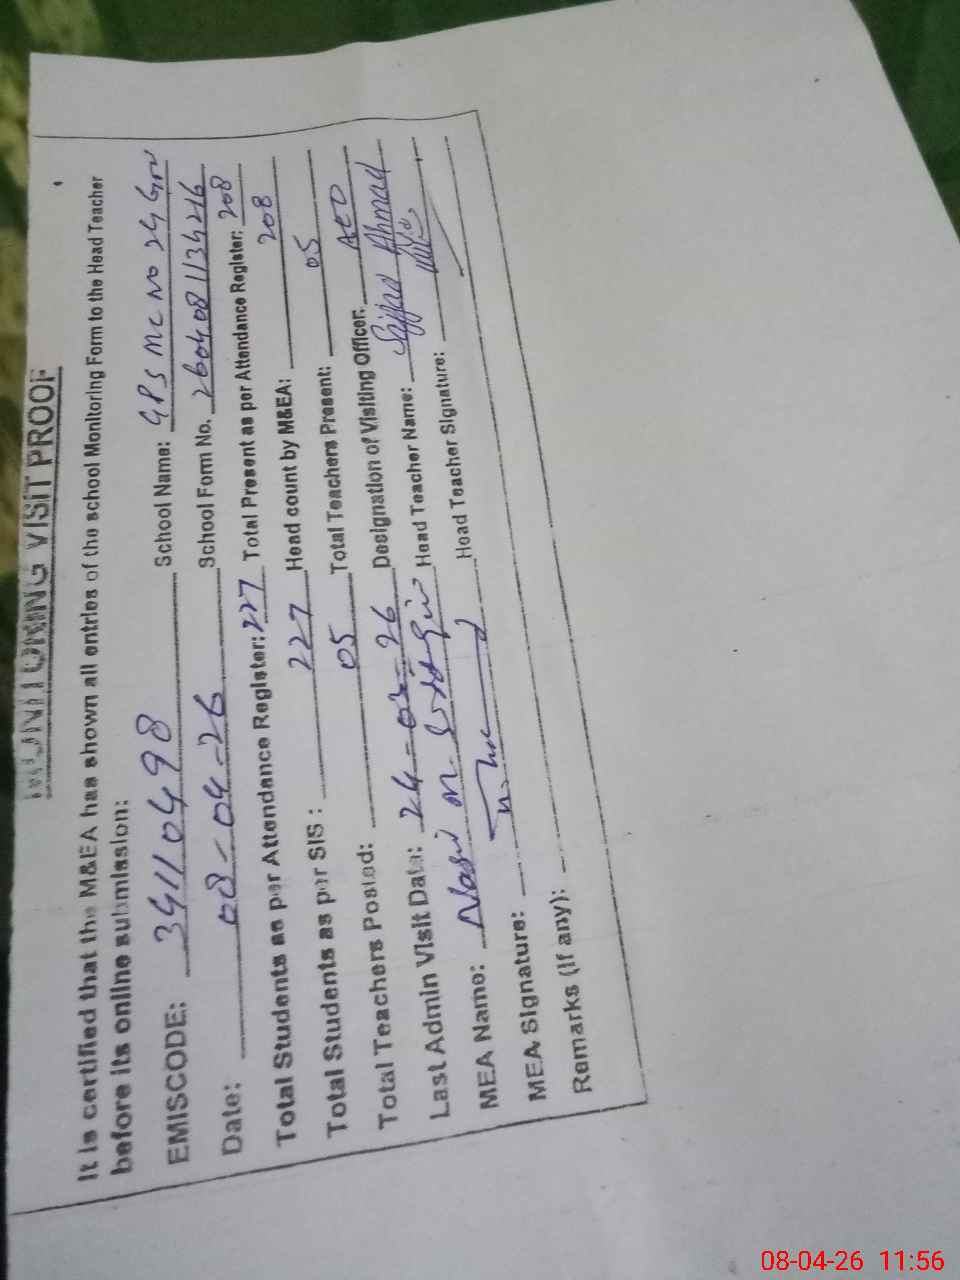 MONITORING VISIT PROOF
It is certified that the M&EA has shown all entries of the school Monitoring Form to the Head Teacher
before its online submission:
EMISCODE: 34110498 School Name: GPS MC NO 24
Date: 08-04-26 School Form No. 260408113426
Total Students as per Attendance Register: 227 Total Present as per Attendance Register: 208
Total Students as per SIS: 227 Head count by M&EA: 208
Total Teachers Posted: 05 Total Teachers Present: 05
Last Admin Visit Date: 24-03-26 Designation of Visiting Officer: AEO
MEA Name: Head Teacher Name: Sajjad Ahmad
MEA Signature: Head Teacher Signature:
Remarks (If any):
08-04-26 11:56